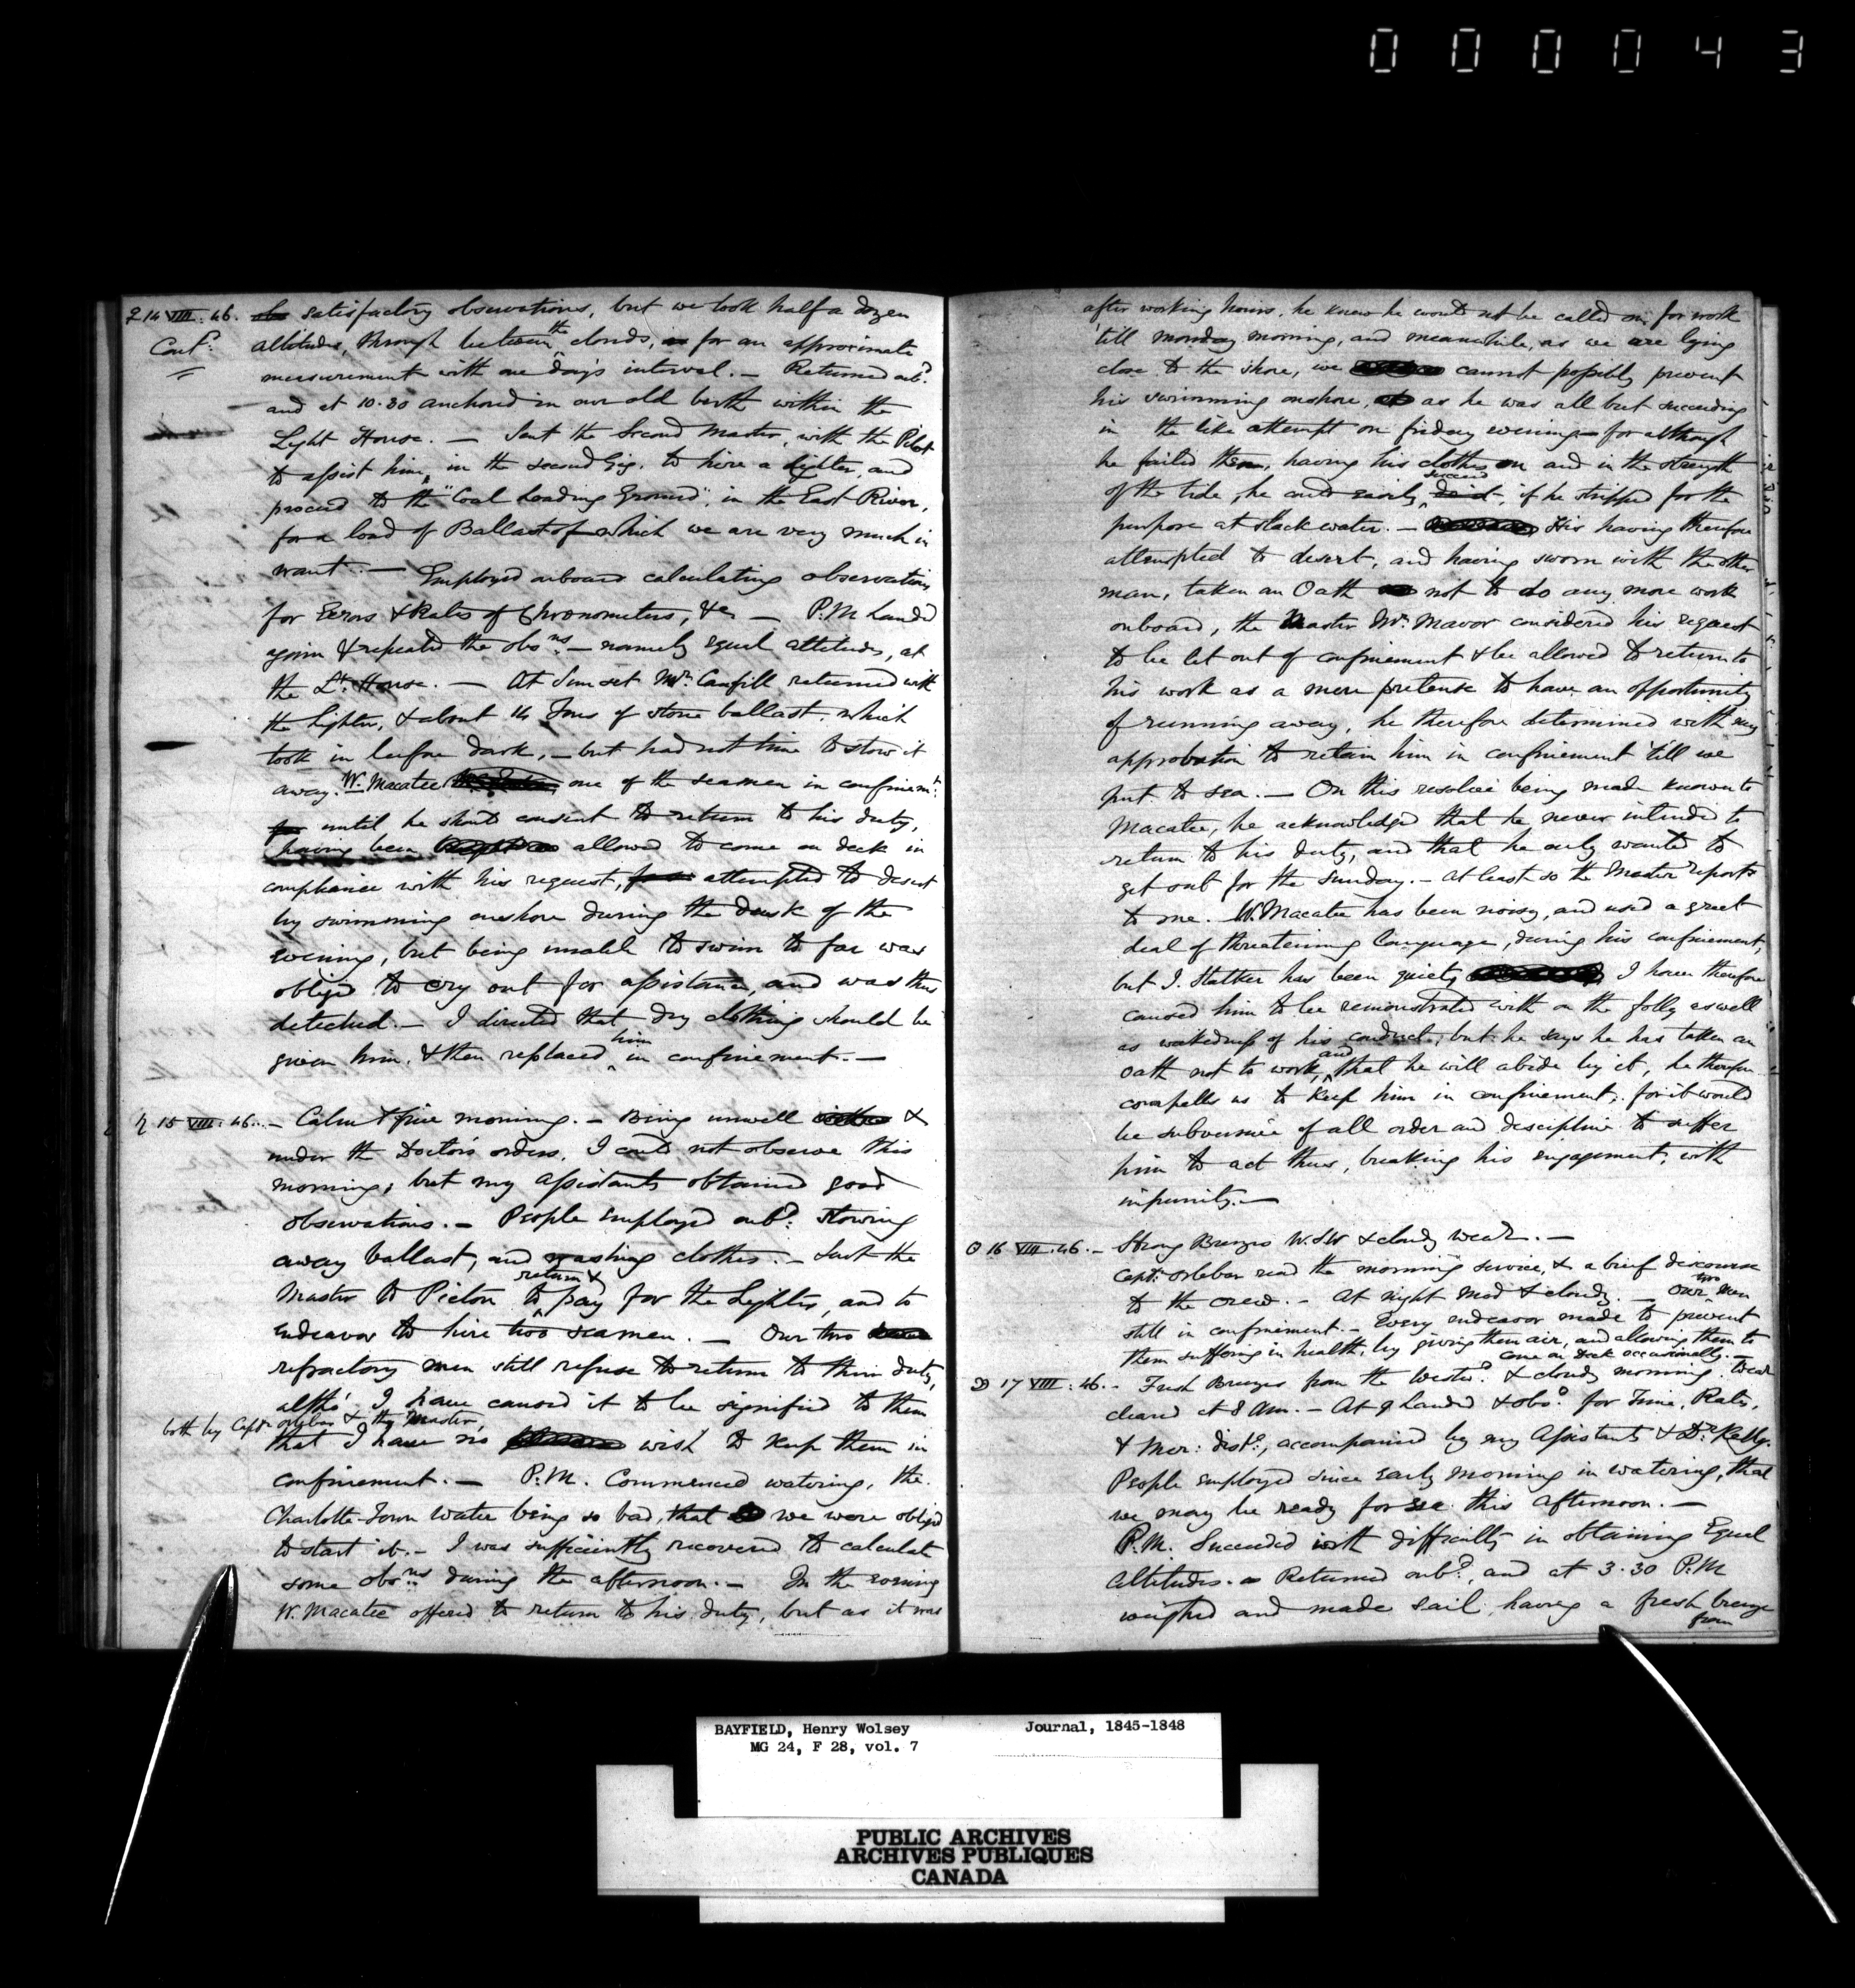 000043
♀ 14 VIII. 46. satisfactory observations, but we took half a dozen
Cont^d. altitudes, through between the clouds, for an approximate
measurement with one day's interval. — Returned onb^d.
and at 10.30 anchored in our old berth within the
Light House. — Sent the Second Master, with the Pilot
to assist him, in the second Gig, to hire a lighter, and
proceed to the "Coal Loading Ground", in the East River,
for a load of Ballast of which we are very much in
want. — Employed onboard calculating observations
for Errors & Rates of Chronometers, &c — P.M. Landed
again & repeated the obs^ns. — namely equal altitudes, at
the L^t. House. — At Sunset M^r. Canfill returned with
the lighter, & about 14 Tons of stone ballast, which
took in before dark, — but had not time to stow it
away. W. Macatee one of the seamen in confinem^t.
until he should consent to return to his duty,
having been allowed to come on deck in
compliance with his request, attempted to desert
by swimming onshore during the dusk of the
evening, but being unable to swim so far was
obliged to cry out for assistance, and was thus
detected. — I directed that dry clothing should be
given him, & then replaced him in confinement. —
♄ 15 VIII. 46. — Calm & fine morning. — Being unwell &
under the Doctor's orders, I could not observe this
morning, but my Assistants obtained good
observations. — People employed onb^d. stowing
away ballast, and washing clothes. — Sent the
Master to Pictou to return & pay for the Lighter, and to
endeavor to hire two seamen. — Our two
refractory men still refuse to return to their duty,
altho' I have caused it to be signified to them
both by Capt^n Orlebar & the Master,
that I have no wish to keep them in
confinement. — P.M. Commenced watering, the
Charlotte-Town water being so bad, that we were obliged
to start it. — I was sufficiently recovered to calculate
some obs^ns. during the afternoon. — In the evening
W. Macatee offered to return to his duty, but as it was
after working hours, he knew he would not be called on for work
'till monday morning, and meanwhile, as we are lying
close to the shore, we cannot possibly prevent
his swimming onshore, as he was all but succeeding
in the like attempt on friday evening — for although
he failed then, having his clothes on and in the strength
of the tide, he could easily succeed, if he stripped for the
purpose at slack water. — His having therefore
attempted to desert, and having sworn with the other
man, taken an Oath not to do any more work
onboard, the Master M^r. Mavor considered his request
to be let out of confinement & be allowed to return to
his work as a mere pretense to have an opportunity
of running away, he therefore determined with my
approbation to retain him in confinement 'till we
put to sea. — On this resolve being made known to
Macatee, he acknowledged that he never intended to
return to his duty, and that he only wanted to
get out for the Sunday. — At least so the Master reports
to me. W. Macatee has been noisy, and used a great
deal of threatening language, during his confinement,
but I. Stalker has been quiet, I have therefore
caused him to be remonstrated with on the folly as well
as wickedness of his conduct, but he says he has taken an
oath not to work, and that he will abide by it, he therefore
compells us to keep him in confinement, for it would
be subversive of all order and discipline to suffer
him to act thus, breaking his engagement, with
impunity. —
☉ 16 VIII. 46. — Strong Breezes W.S.W & cloudy weath^r. —
Capt^n: Orlebar read the morning service, & a brief discourse
to the crew. — At night Mod & cloudy. — Our two men
still in confinement. — Every endeavor made to prevent
them suffering in health, by giving them air, and allowing them to
come on Deck occasionally. —
☽ 17 VIII. 46. — Fresh Breezes from the West^d. & cloudy morning. Weath
cleared at 8 AM. — At 9 Landed & obs^d. for Time, Rates,
& Mer: dist^e., accompanied by my Assistants & D^r. Kelly.
People employed since early morning in watering, that
we may be ready for sea this afternoon. —
P.M. Succeeded with difficulty in obtaining Equal
Altitudes. Returned onb^d., and at 3.30 P.M
weighed and made sail, having a fresh breeze
from
BAYFIELD, Henry Wolsey Journal, 1845-1848
MG 24, F 28, vol. 7
PUBLIC ARCHIVES
ARCHIVES PUBLIQUES
CANADA